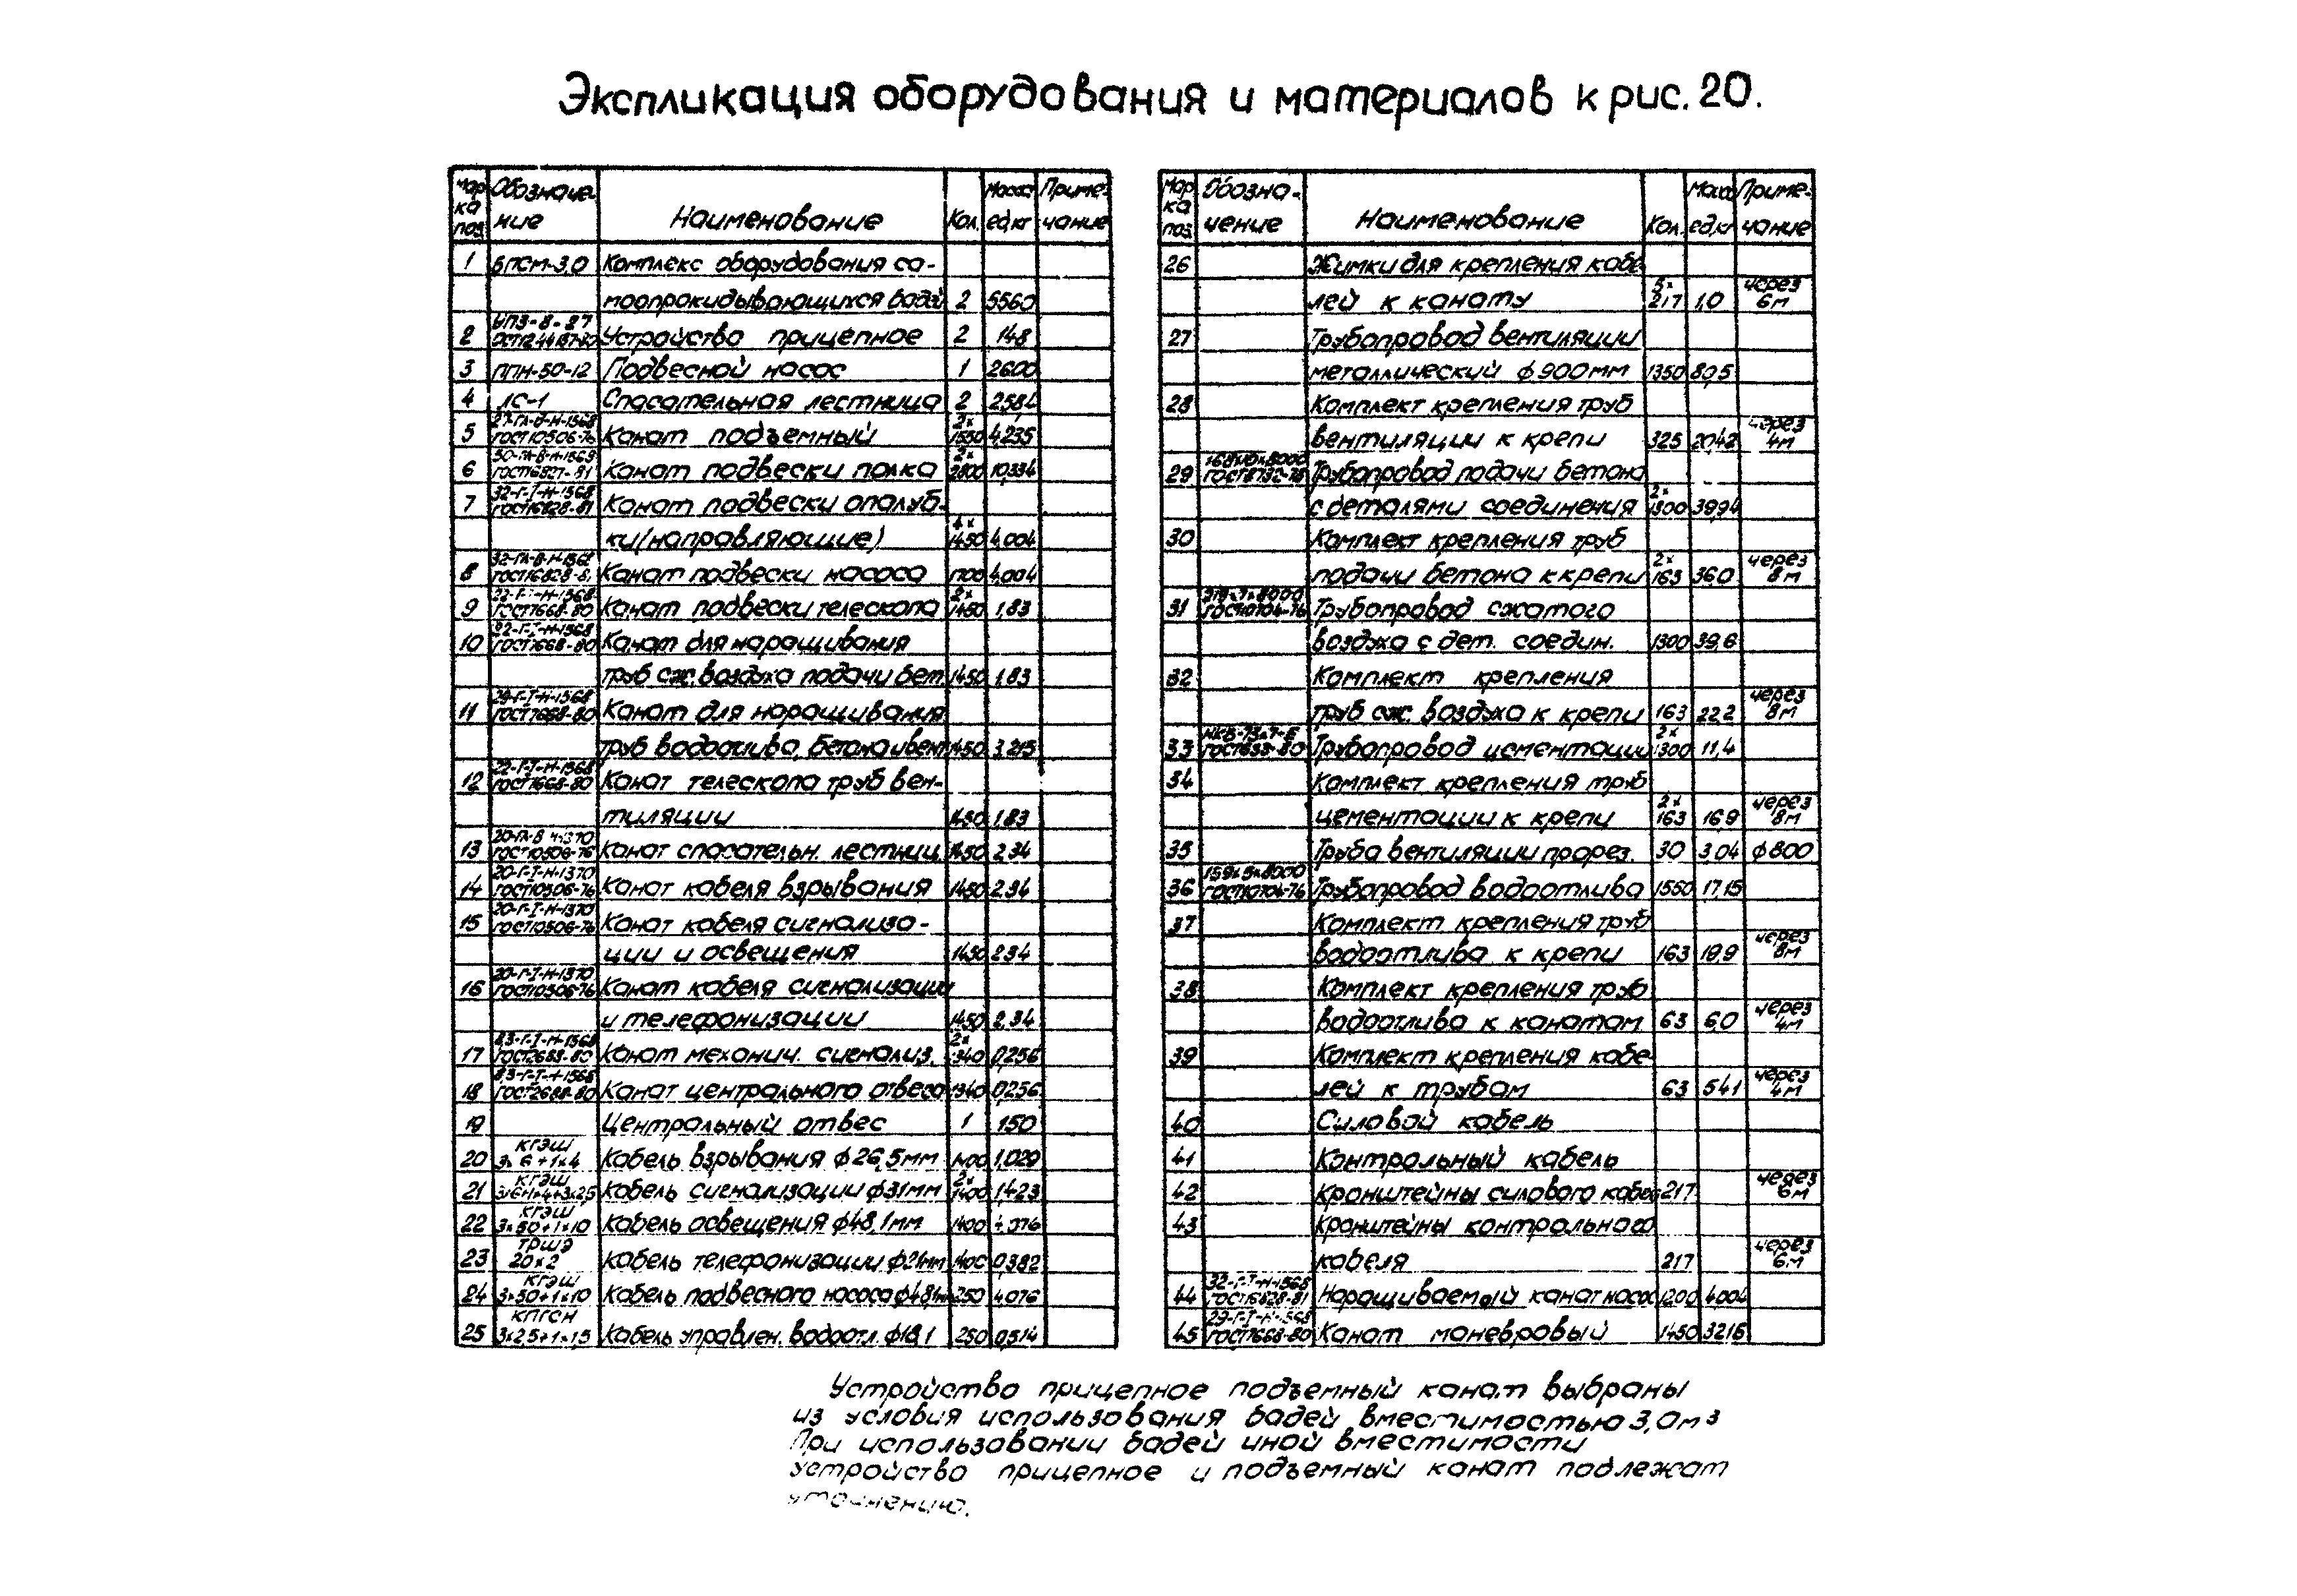 Экспликация оборудования и материалов к рис. 20.
Мар ка поз Обозначе- ние Наименование Кол. Масса ед,кг Приме- чание
1 БПСМ-3,0 Комплекс оборудования са-
моопрокидывающихся бадей 2 5560
2 УПЗ-8-27 Устройство прицепное 2 148
3 ППН-50-12 Подвесной насос 1 2600
4 ЛС-1 Спасательная лестница 2 2584
5 ГОСТ10506-76 Канат подъемный 2x 1550 4,235
6 ГОСТ16827-81 Канат подвески полка 2x 2800 10,334
7 32-Г-I-Н-1568 ГОСТ16828-81 Канат подвески опалуб-
ки(направляющие) 4x 1450 4,004
8 32-ГЛ-В-Н-1568 Канат подвески насоса 4,004
9 22-Г-I-Н-1568 ГОСТ7668-80 Канат подвески телескопа 2x 1450 1,83
10 22-Г-I-Н-1568 ГОСТ7668-80 Канат для наращивания
труб сж. воздуха подачи бет. 1450 1,83
11 29-Г-I-Н-1568 ГОСТ7668-80 Канат для наращивания
труб водоотлива, бетона и вент 1450 3,215
12 22-Г-I-Н-1568 ГОСТ7668-80 Канат телескопа труб вен-
тиляции 1450 1,83
13 ГОСТ10506-76 Канат спасательн. лестниц. 1450 2,34
14 20-Г-I-Н-1370 ГОСТ10506-76 Канат кабеля взрывания 1450 2,34
15 20-Г-I-Н-1370 ГОСТ10506-76 Канат кабеля сигнализа-
ции и освещения 1450 2,34
16 20-Г-I-Н-1370 ГОСТ10506-76 Канат кабеля сигнализации
и телефонизации 1450 2,34
17 8,3-Г-I-Н-1568 ГОСТ2688-80 Канат механич. сигнализ. 2x 1340 0,256
18 8,3-Г-I-Н-1568 ГОСТ2688-80 Канат центрального отвеса 1340 0,256
19 Центральный отвес 1 150
20 КГЭШ 3x6+1x4 Кабель взрывания ф26,5мм 1400 1,029
21 КГЭШ Кабель сигнализации ф31мм 2x 1400 1,423
22 КГЭШ 3x50+1x10 Кабель освещения ф48,1мм 1400 4,076
23 ТРШЭ 20x2 Кабель телефонизации ф21мм 1400 0,382
24 КГЭШ 3x50+1x10 Кабель подвесного насоса ф48,1м 250 4,076
25 КПГСН 3x2,5+1x1,5 Кабель управлен. водоотл. ф18,1 250 0,514
Мар ка поз Обозна- чение Наименование Кол. Масса ед,кг Приме- чание
26 Жимки для крепления кабе
лей к канату 5x 217 1,0 через 6м
27 Трубопровод вентиляции
металлический ф900мм 1350 80,5
28 Комплект крепления труб
вентиляции к крепи 325 20,42 через 4м
29 168x10x8000 ГОСТ8732-78 Трубопровод подачи бетона
с деталями соединения 2x 1300 39,94
30 Комплект крепления труб
подачи бетона к крепи 2x 163 36,0 через 8м
31 219x7x8000 ГОСТ10704-76 Трубопровод сжатого
воздуха с дет. соедин. 1300 39,6
32 Комплект крепления
труб сж. воздуха к крепи 163 22,2 через 8м
33 НКБ-73x7-Е ГОСТ633-80 Трубопровод цементации 2x 1300 11,4
34 Комплект крепления труб
цементации к крепи 2x 163 16,9 через 8м
35 Труба вентиляции прорез. 30 3,04 ф800
36 159x5x8000 ГОСТ10704-76 Трубопровод водоотлива 1550 17,15
37 Комплект крепления труб
водоотлива к крепи 163 19,9 через 8м
38 Комплект крепления труб
водоотлива к канатам 63 6,0 через 4м
39 Комплект крепления кабе
лей к трубам 63 5,41 через 4м
40 Силовой кабель
41 Контрольный кабель
42 Кронштейны силового кабел 217 через 6м
43 Кронштейны контрольного
кабеля 217 через 6м
44 32-Г-I-Н-1568 ГОСТ16828-81 Наращиваемый канат насос 1200 4,004
45 29-Г-I-Н-1568 ГОСТ7668-80 Канат маневровый 1450 3,215
Устройство прицепное подъемный канат выбраны
из условия использования бадей вместимостью 3,0м³
При использовании бадей иной вместимости
устройство прицепное и подъемный канат подлежат
уточнению.